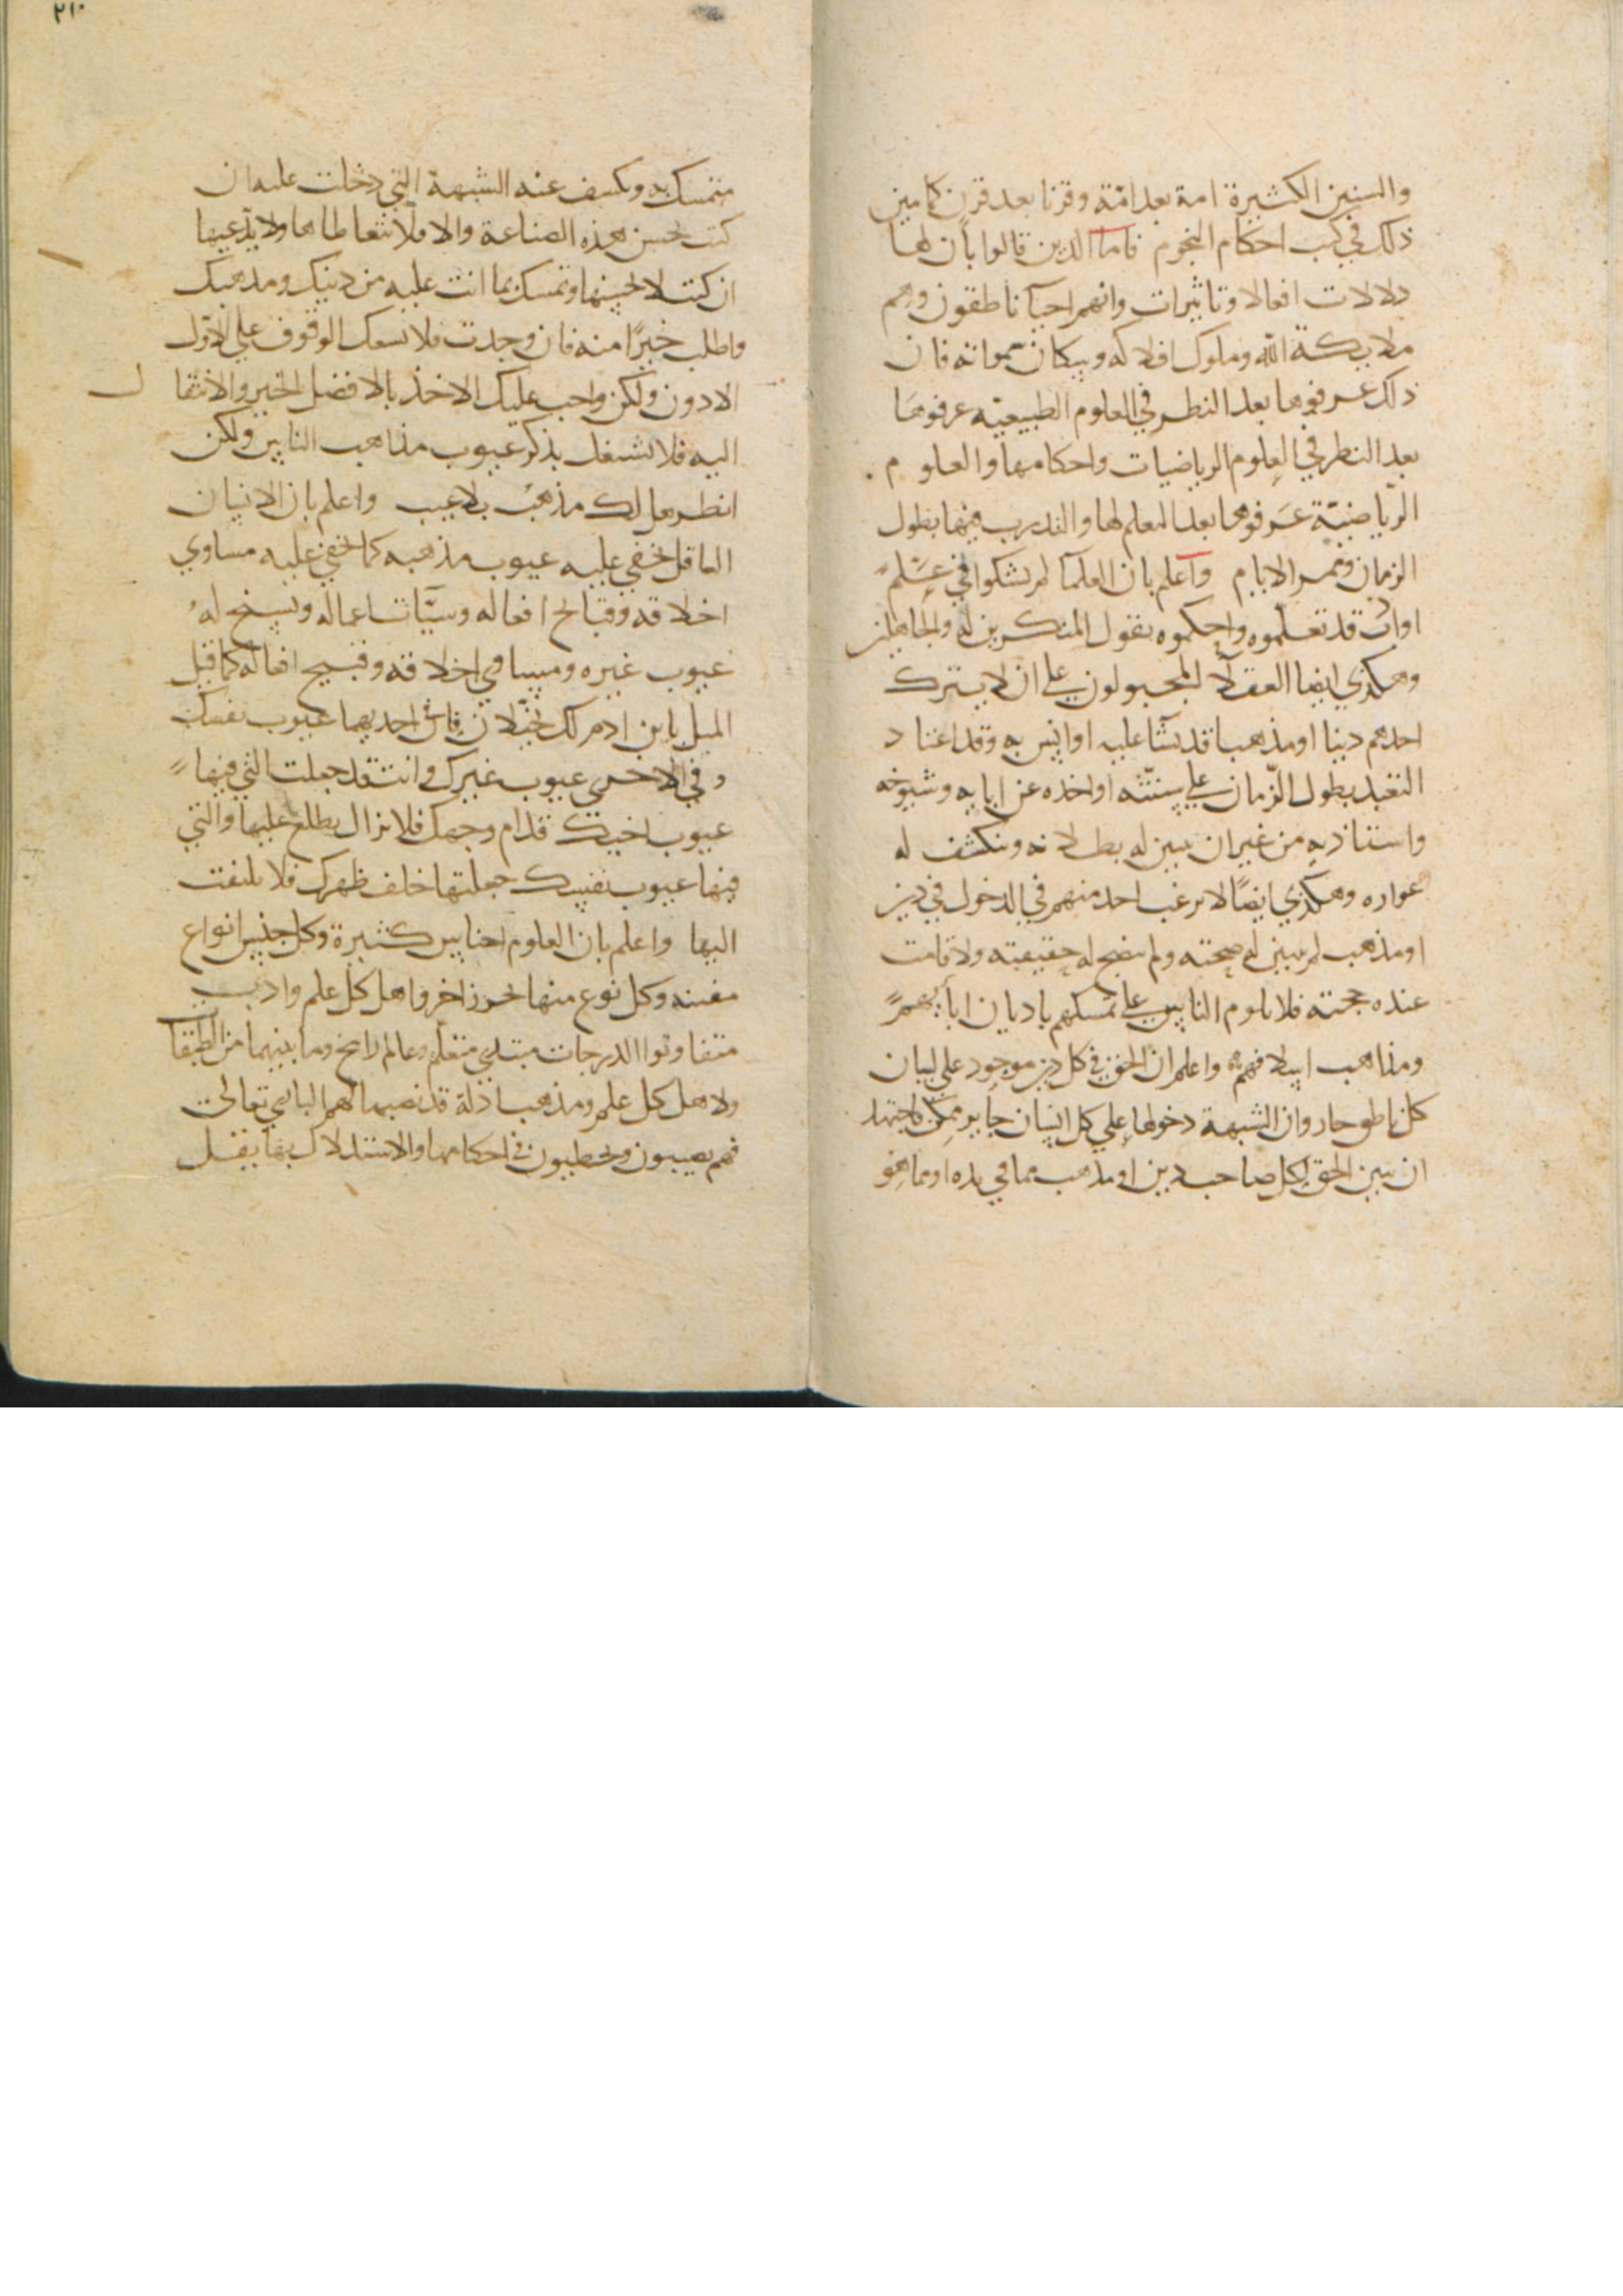 والسنين الكثيرة امة بعد امّة وقرنا بعد قرن كما بين
ذلك في كتب احكام النجوم فاما الذين قالوا بان لها
دلالات افعالا وتاثيرات وانهم احيآ ناطقون وهم
ملايكة الله وملوك افلاكه وسكان سمواته فان
ذلك عرفوها بعد النظر في العلوم الطبيعيّه عرفوها
بعد النظر في العلوم الرياضيات واحكامها والعلوم
الرّياضيّة عرفوها بعد التعلم لها والتدرب فيها بطول
الزمان وممر الايام واعلم بان العلمآ لم يشكوا في علم
اواب قد تعلموه واحكموه بقول المنكرين له والجاهلين
وهكذي ايضا العقلآ المجبولون على ان لا يترك
احدهم دينا او مذهبا قد نشا عليه او انس به وقد اعتاد
التعبد بطول الزّمان على سنته او اخذه عن ابايه وشيوخه
واستاذيه من غير ان يبين له بطلانه وينكشف له
عواره وهكذي ايضًا لا يرغب احد منهم في الدخول في دين
او مذهب لم يبين له صحته ولم يتضح له حقيقته ولا قامت
عنده حجته فلا تلوم الناس على تمسكهم باديان ابآيهم
ومذاهب اسلافهم واعلم ان الحق في كل دين موجود على لسان
كل ناطق جار وان الشبهة دخولها على كل انسان جايز ممكن فاجتهد
ان تبين الحق لكل صاحب دين او مذهب مما في يده او مما هو
٢١٠
متمسك به وتكشف عنه الشبهة التي دخلت عليه ان
كنت تحسن هذه الصناعة والا فلا تتعاطاها ولا تدّعيها
ان كنت لا تحسنها وتمسك بما انت عليه من دينك ومذهبك
واطلب خيرًا منه فان وجدت فلا يسعك الوقوف على الاوّل
الادون ولكن واجب عليك الاخذ بالافضل الخير والانتقال
اليه فلا تشتغل بذكر عيوب مذاهب الناس ولكن
انظر هل لك مذهب بلا عيب واعلم بان الانسان
العاقل تخفي عليه عيوب مذهبه كما تخفي عليه مساوي
اخلاقه وقبائح افعاله وسيّات اعماله ويسنح له
عيوب غيره ومساوي اخلاقه وقبيح افعاله كما قيل
المثل يا بن ادم لك مخلاتان في احديهما عيوب نفسك
وفي الاخرى عيوب غيرك وانت قد جعلت التي فيها
عيوب اخيك قدام وجهك فلا تزال تطلع عليها والتي
فيها عيوب نفسك جعلتها خلف ظهرك فلا تلتفت
اليها واعلم بان العلوم اجناس كثيرة وكل جنس انواع
مفننه وكل نوع منها بحر زاخر واهل كل علم وادب
متفاوتوا الدرجات مبتدي متعلم وعالم راسخ وما بينهما من الطبقات
ولاهل كل علم ومذهب ادلة قد نصبها لهم الباري تعالى
فهم يصيبون ويخطيون في احكامها والاستدلال بها بفضل